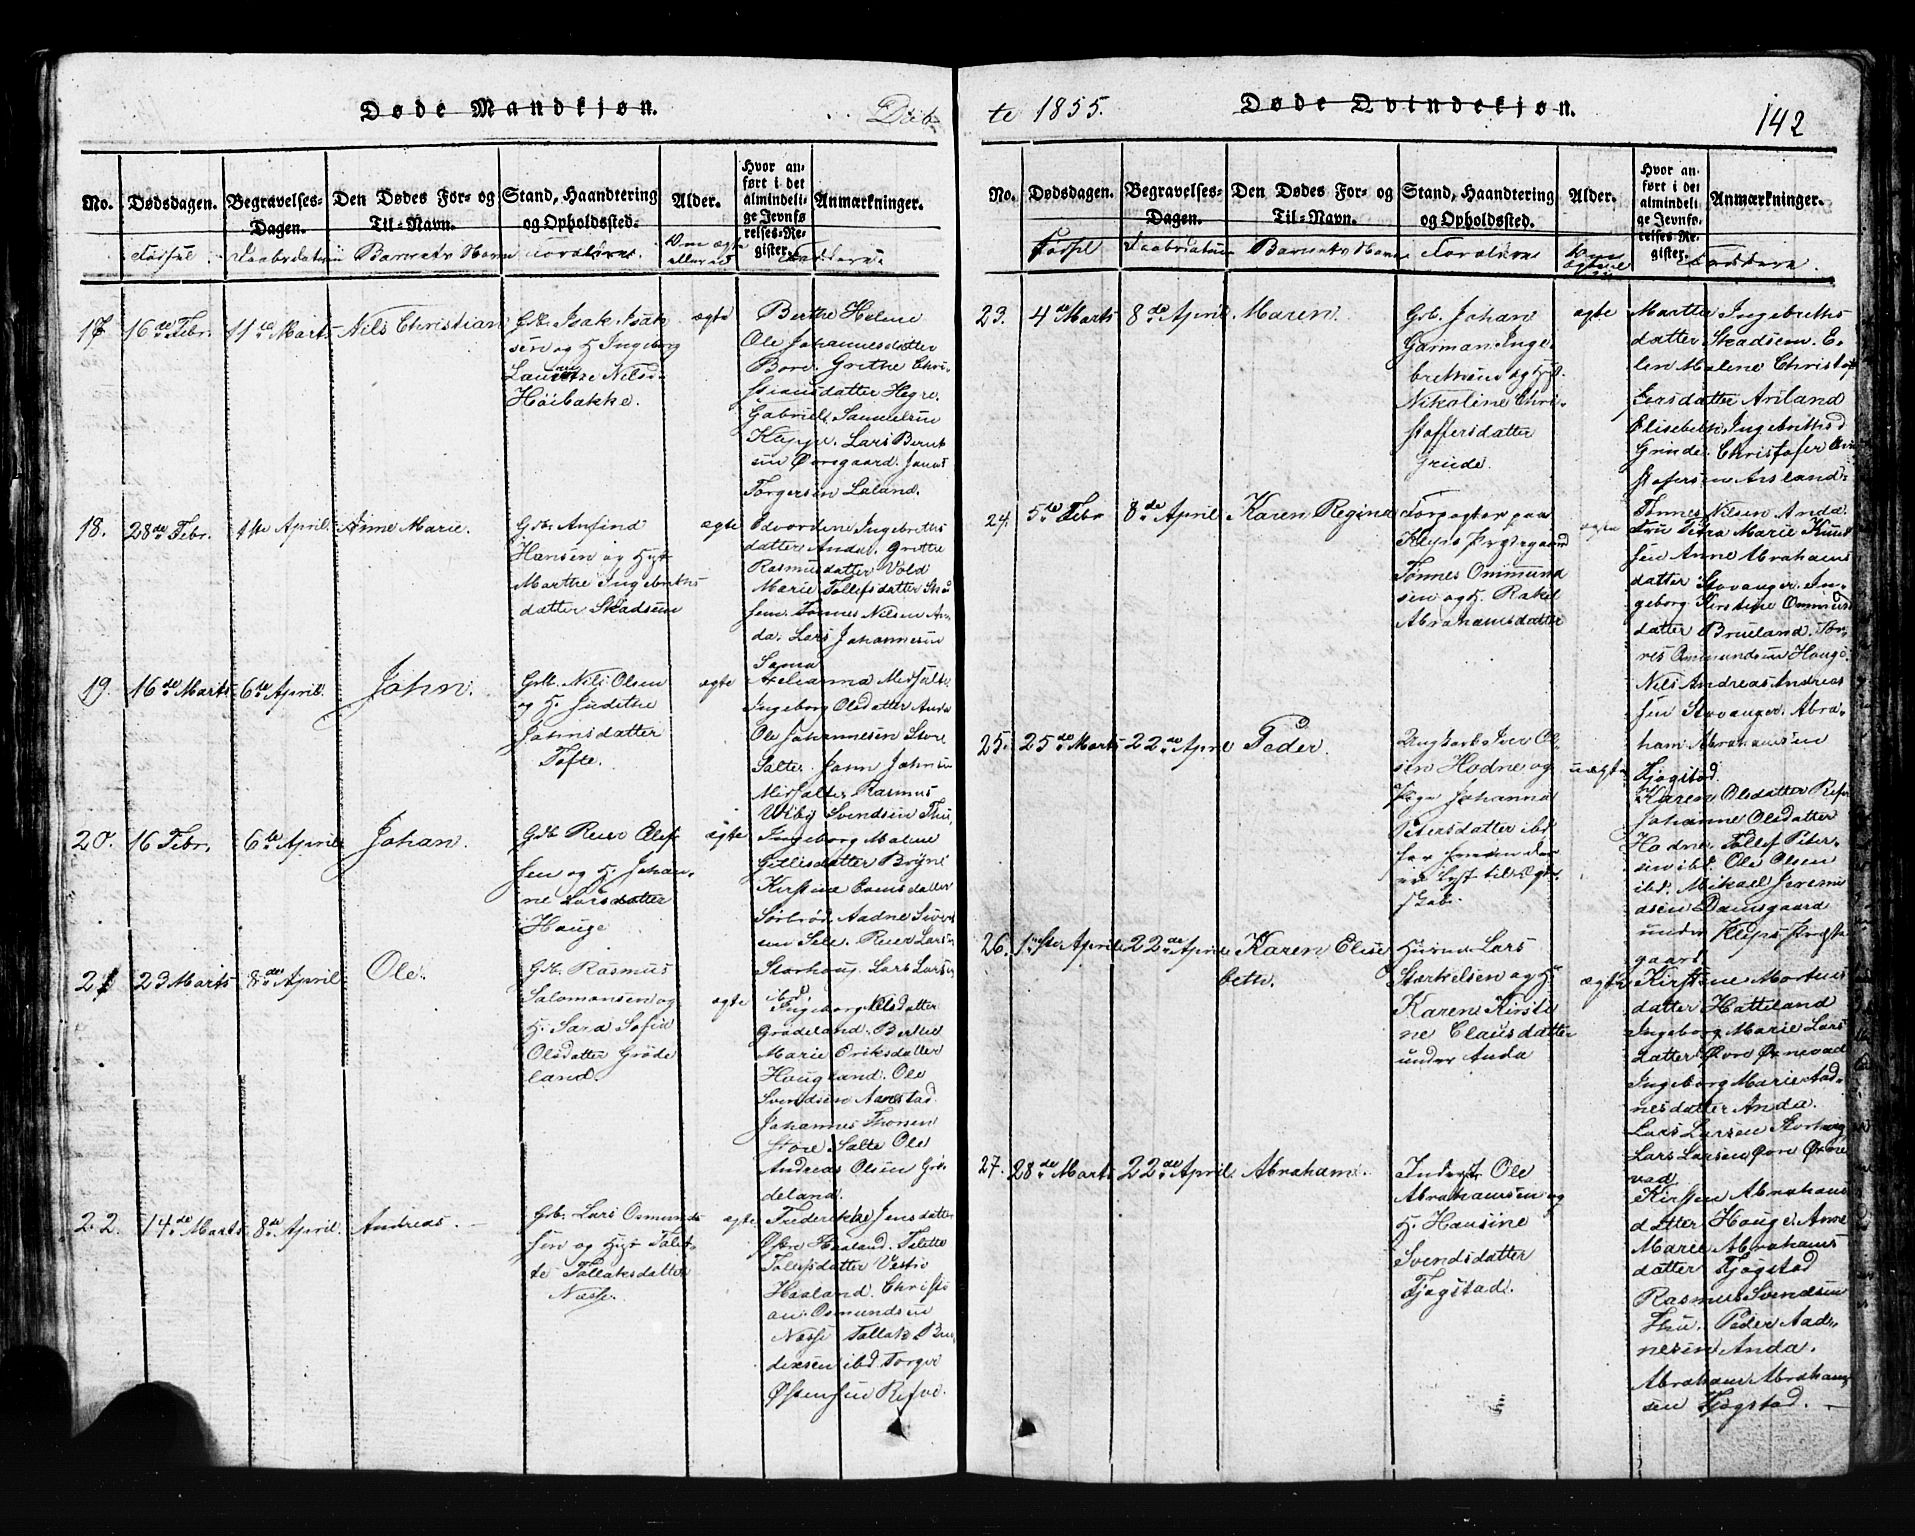 Døde Mandkjøn.
Døb
No.
Dødsdagen.
Begravelses-
Dagen.
Den Dødes For- og
Til-Navn.
Stand, Haandtering
og Opholdssted.
Alder.
Hvor an-
ført i det
almindeli-
ge Jevnfø
relses-Re-
gister.
Anmærkninger.
Fødsel
Daabsdatum
Barnets Navn
Forældrene
Om ægte
eller ei
Faddere
17.
16de Febr.
11te Marts
Nils Christian
Gdb. Isak Isak
sen og H. Ingeborg
Laurine Nils
Høibakke.
ægte
Berthe Helene
Ole Johannesdatter
Bore. Grethe Chri-
stiansdatter Hegre.
Gabriel Samuelsen
Kleppe. Lars Bernt
sen Orsgaard. Jonas
Torgersen Laland.
18.
28de Febr.
1ste April
Anne Marie.
Gdb. Anfind
Hansen og Hust
Marthe Ingebreths
datter Skadsem
ægte
Edvordine Ingebreths
datter Anda. Grethe
Rasmusdatter Vold
Marie Tollefsdatter
Tønnes Nilsen An-
da. Lars Johannesen
Soma
19.
16de Marts
6te April.
John.
Gdb. Nils Olsen
og H. Judithe
Johnsdatter
Tofte.
ægte
Ingeborg Olsdatter Anda
Ole Johannesen Store
Salte. John Johnsen
Midsalte. Rasmus
Wiby Svendsen Thu.
20.
16 Febr.
6te April
Johan.
Gdb. Reier Olef
sen og H. Johan-
ne Larsdatter
Hauge
ægte
Ingeborg Malene
Gitlesdatter Bryne
Kirstine Evensdatter
Sørbrød. Aadne Siverts
sen Sele. Reier Larsen
Storhoug. Lars Larsen
ibd.
21
23 Marts
8de April
Ole.
Gdb. Rasmus
Salomonsen og
H. Sara Sofie
Olsdatter Grøde
land.
ægte
Ingeborg Olsdatter
Grødeland. Berthe
Marie Eriksdatter
Haugland. Ole
Svendsen Aarestad.
Johannes Thorsen
Store Salte Ole
Andreas Olsen Grø
deland.
22.
14de Marts
8de April.
Andreas.
Gdb. Lars Osmund
sen og Hust Talet-
te Tollaksdatter
Næsse.
ægte
Frederikke Jensdatter
Østre Haaland. Talette
Tolefsdatter Vestre
Haaland. Christi
an Osmundsen
Næsse Tollak Ben
dixsen ibd. Torger
Østensen Refve.
te 1855.
Døde Qvindekjøn.
142
No.
Dødsdagen.
Begravelses-
Dagen.
Den Dødes For- og
Til-Navn.
Stand, Haandtering
og Opholdssted.
Alder.
Hvor an
ført i det
almindeli
ge Jevnfø
relses-Re
gister.
Anmærkninger.
Fødsel
Daabsdatum
Barnets Navn
Forældrene
Om
ægte eller
Faddere.
23.
4de Marts
8de April
Maren.
Gdb. Johan
Garman Inge-
bretsen og Hust.
Nikoline Chri-
stoffersdatter
Grude.
ægte
Marthe Ingebreths
datter Skadsem. E-
len Malene Christof
fersdatter Ariland
Elisebeth Ingebrethsd
Grude. Christofer Chri
stofersen Arsland.
Tønnes Nilsen Anda.
24.
5te Febr
8de April
Karen Regine
Forpagter paa
Kleps Præstegaard
Tønnes Ommund
sen og H. Rakel
Abrahamsdatter
ægte
Fru Petra Marie Knud
sen Anne Abrahams
datter Stavanger. In-
geborg Kirstine Ommunds
datter Brueland. Tor-
res Ommundsen Hauge.
Nils Andreas Andreas
sen Stavanger. Abra-
ham Abrahamsen
Fjogstad.
25.
25de Marts
22de April
Peder.
Ungkarl Iver Ol-
sen Hodne og
Pige Johanna
Petersdatter ibd
uægte
Karen Olsdatter Refve
Johanne Olsdatter
Hodne. Tollef Peter-
sen ibd. Ole Olsen
ibd. Mikael Jeremi
asen Damsgaard
under Kleps Præste
gaard
26.
1ste April
22de April
Karen Elise
beth.
Husmd. Lars
Stærkelsen og H
Karen Kirsti
ne Clausdatter
under Anda
ægte
Kirstene Mortens
datter Hatteland
Ingeborg Marie Lars
datter Øvre Øxnevad
Ingeborg Marie Aad-
nesdatter Anda.
Lars Larsen Storhoug
Lars Larsen Øvre Øxne
vad.
27.
28de Marts
22de April
Abraham.
Inderst Ole
Abrahamsen og
H. Hansine
Svendsdatter
Fjogstad.
Kirsten Abrahams
datter Hauge. Anne
Marie Abrahams
datter Fjogstad
Rasmus Svendsen
Thu. Peder Aad-
nesen Anda.
Abraham Abraham
sen Fjogstad.